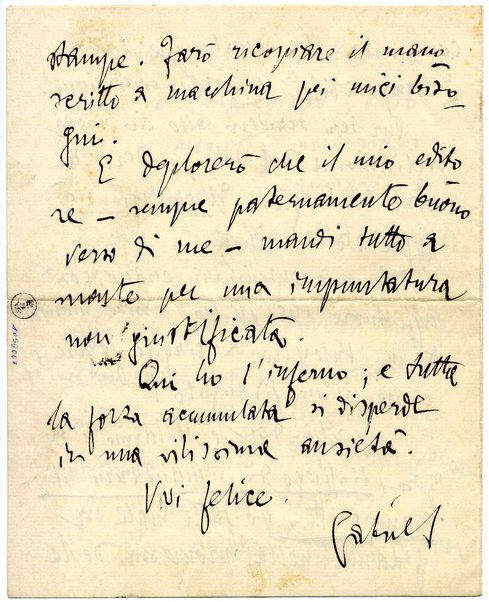 stampe. Farò ricopiare il mano
scritto a macchina pei miei biso-
gni.
E deplorerò che il mio edito
re – sempre paternamente buono
verso di me – mandi tutto a
monte per una impuntatura
non giustificata.
Qui ho l'inferno; e tutta
la forza accumulata si disperde
in una vilissima ansietà.
Vivi felice.